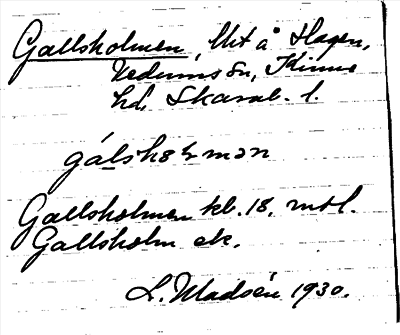 Gallsholmen, lht å Hagen,
Vedums sn, Kinne
hd, Skarab. l.
gálshołmən
Gallsholmen kb. 18, mtl.
Gallsholm ek.
L. Madsén 1930.